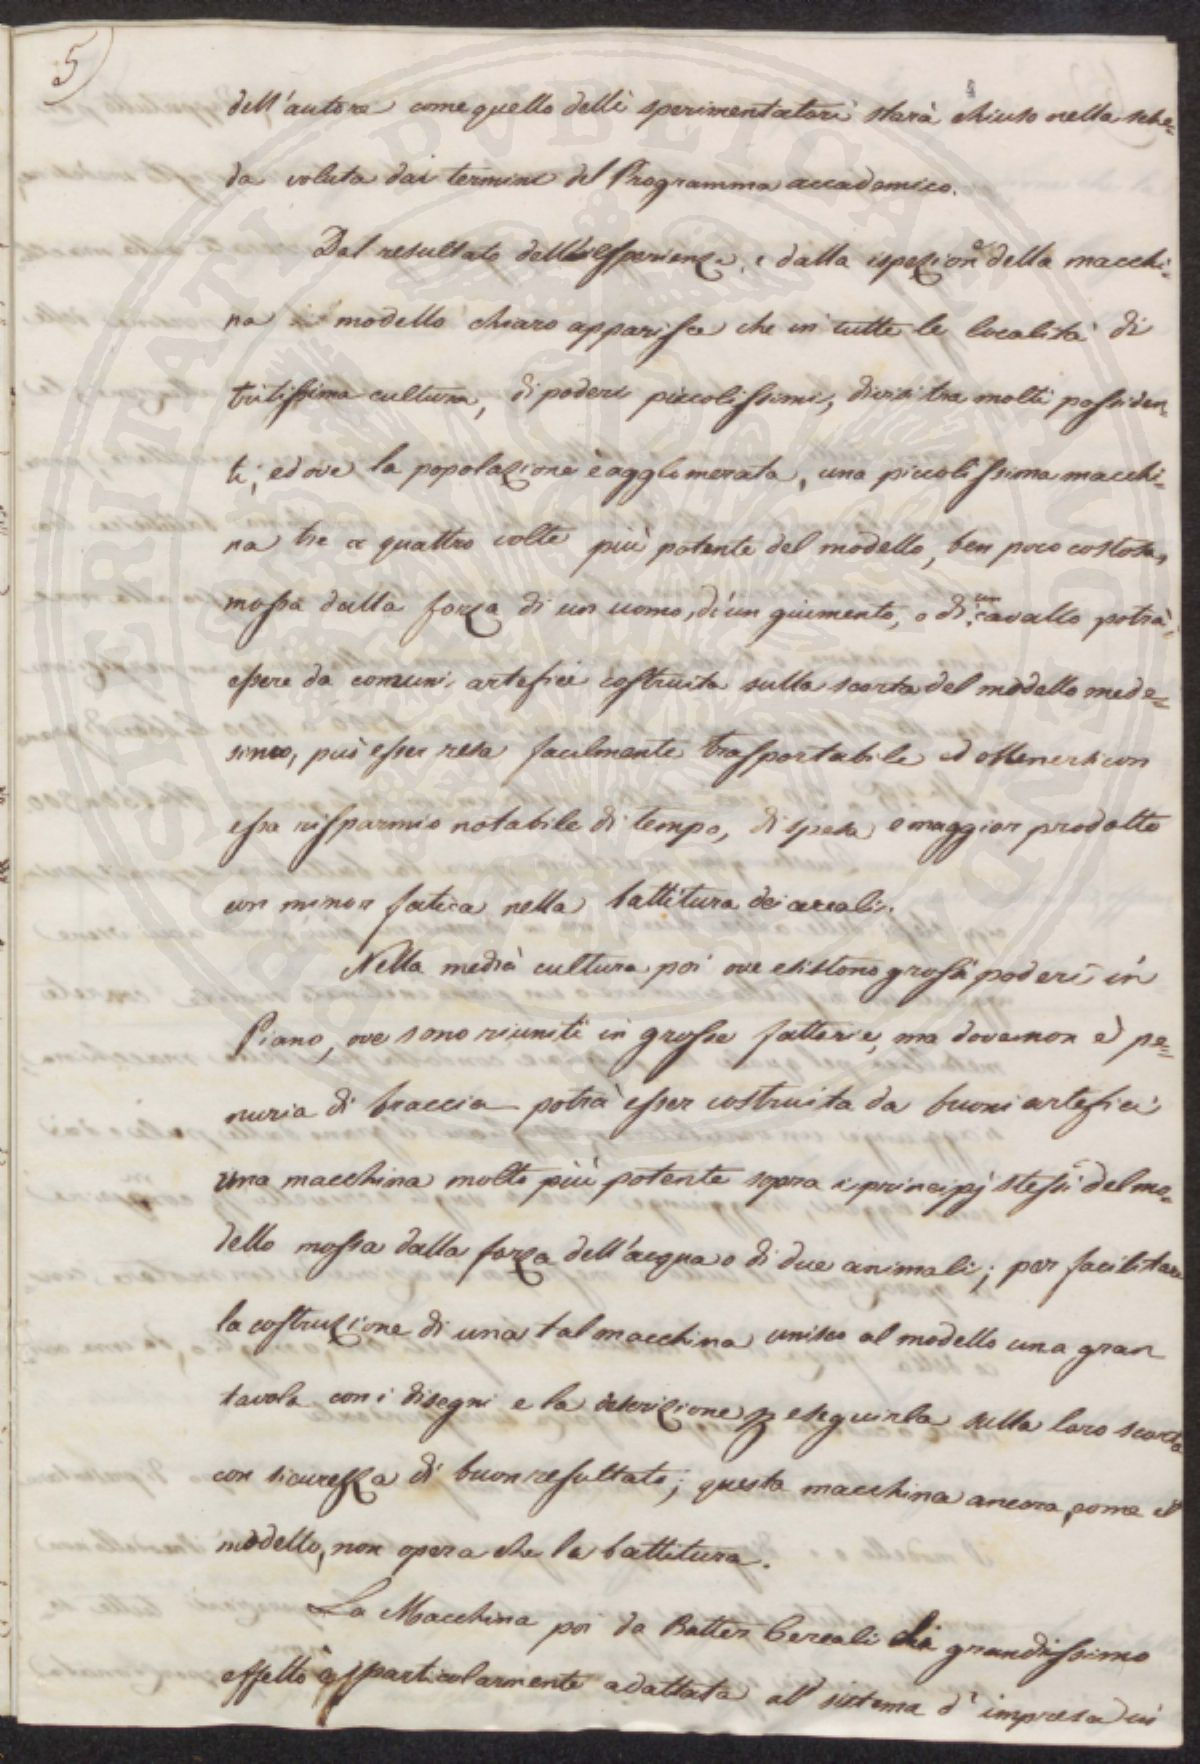 5)
dell'autore come quello delli sperimentatori starà chiuso nella sche=
da voluta dai termini del Programma accademico.
Dal resultato dell'esperienze, e dalla ispezione della macchi=
na modello chiaro apparisce che in tutte le località di
tritissima cultura, di poderi piccolissimi, divisi tra molti possiden
ti, ed ove la popolazione è agglomerata, una piccolissima macchi=
na tre o quattro volte più potente del modello, ben poco costosa,
mossa dalla forza di un uomo, di un giumento, o di un cavallo potrà
essere da comuni artefici costruita sulla scorta del modello mede=
simo, può esser resa facilmente trasportabile ed ottenersi con
essa risparmio notabile di tempo, di spesa e maggior prodotto
con minor fatica nella battitura dei cereali.
Nella media cultura poi ove esistono grossi poderi in
Piano, ove sono riuniti in grosse fattorie, ma dove non è pe=
nuria di braccia potrà esser costruita da buoni artefici
una macchina molto più potente sopra i principj stessi del mo=
dello mossa dalla forza dell'acqua o di due animali; per facilitare
la costruzione di una tal macchina unisco al modello una gran
tavola con i disegni e la descrizione p eseguirla sulla loro scorta
con sicurezza di buon resultato; questa macchina ancora, come il
modello, non opera che la battitura.
La Macchina poi da Batter Cereali di grandissimo
effetto e particolarmente adattata al sistema d'impresa in